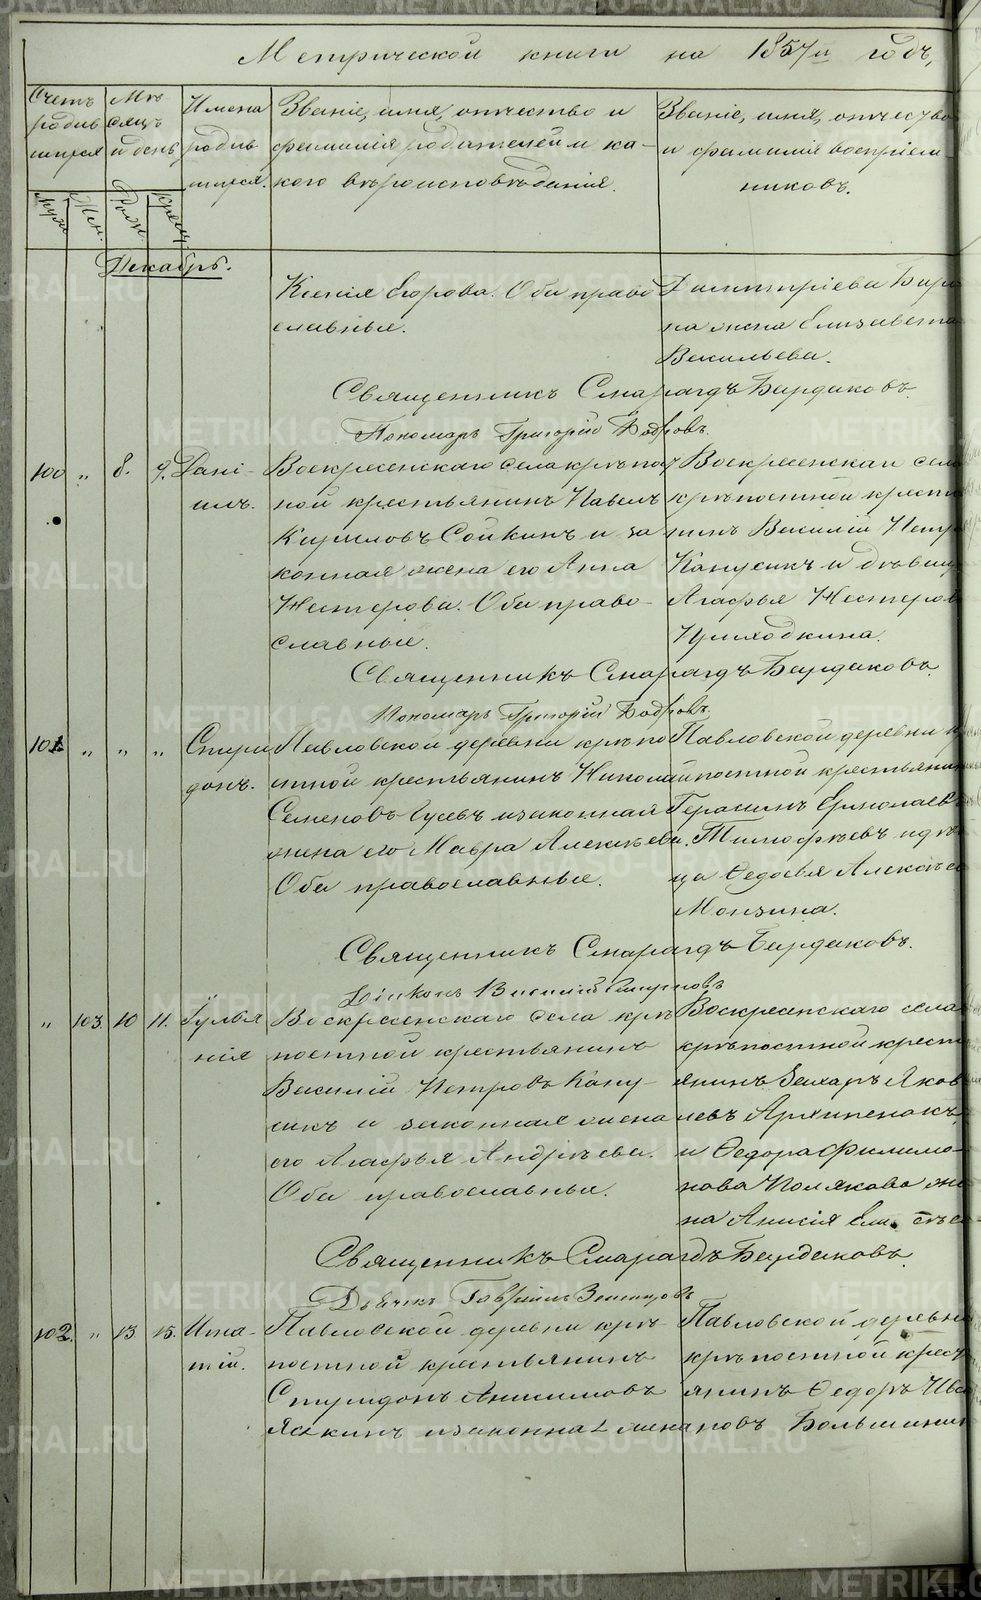 Метрической книги на 1857й годъ,
Счетъ родившихся
Мѣсяцъ и день
Имена родившихся.
Званіе, имя, отчество и фамилія родителей и какого вѣроисповѣданія.
Званіе, имя, отчество и фамилія воспріемниковъ.
Муж. Жен. Рожд. Крещ.
Декабрь.
Ксенія Егорова. Оба право
славные.
Димитріева
на жена Елизавета
Васильева.
Священникъ Смарагдъ Бирдаковъ.
Пономарь Григорій Бобровъ.
100 „ 8. 9. Дані-
илъ.
Воскресенскаго села крѣпост
ной крестьянинъ Павелъ
Кириловъ Сойкинъ и за
конная жена его Анна
Нестерова. Оба право-
славные.
Воскресенскаго села
крѣпостной крестья
нинъ Василій Петр
Канусикъ и дѣвица
Агафья Нестеров
Приходкина.
Священникъ Смарагдъ Бирдаковъ.
Пономарь Григорій Бобровъ.
101 „ „ „ Спири
донъ.
Павловской деревни крѣпо
стной крестьянинъ Николай
Семеновъ Гусевъ и законная
жена его Мавра Алексѣева.
Оба православные.
Павловской деревни кр
постной крестьянин
Ермолаевъ
Тимофѣевъ и дѣв
ца Ѳедосья Алексѣе
Монзина.
Священникъ Смарагдъ Бирдаковъ.
Діаконъ Василій Смирновъ
„ 103. 10 11. Гулья
нія
Воскресенскаго села крѣ
постной крестьянинъ
Василій Петровъ Кану-
сикъ и законная жена
его Агафья Андреева.
Оба православные.
Воскресенскаго села
крѣпостной кресть
янинъ Захаръ Яков
левъ Архипенокъ,
и Ѳедора Филимо-
нова Полякова же
на Анисія
Священникъ Смарагдъ Бирдаковъ.
Дьячекъ Гавріилъ
102. „ 13 15. Игна-
тій.
Павловской деревни крѣ-
постной крестьянинъ
Спиридонъ Анисимовъ
Яскинъ и законная жена
Павловской деревни
крѣпостной крест
янинъ Ѳедоръ Ива
новъ Большинин
METRIKI.GASO-URAL.RU